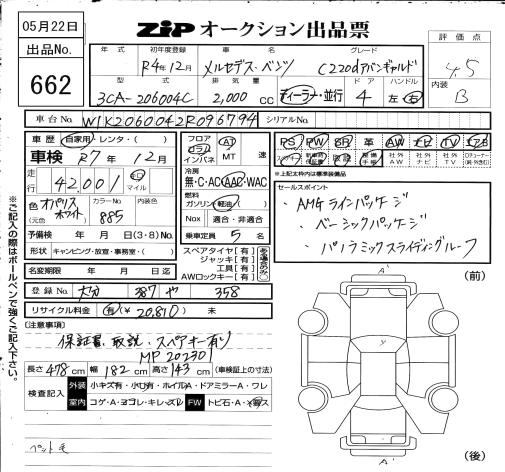 05月22日
ZIP オークション出品票
出品No.
662
評価点
4.5
内装
B
年式 初年度登録 車名 グレード
R4年12月 メルセデス・ベンツ C220dアバンギャルド
型式 排気量 ドア ハンドル
3CA-206004C 2,000 cc ディーラー・並行 4 左・右
車台No. W1K2060042R096794 シリアルNo.
車歴 自家用・レンタ・( )
車検 R7年12月
走行 42,001 キロ マイル
色 オパリスホワイト (元色) カラーNo. 885 内装色
予備検 年 月 日(3・8)No.
形状 キャンピング・放宣・事務室・( )
名変期限 年 月 日迄
フロア コラム インパネ AT MT 速
冷房 無・C・AC・AAC・WAC
燃料 ガソリン・軽油( )
Nox 適合・非適合
乗車定員 5 名
スペアタイヤ【有】
ジャッキ【有】
工具【有】
AWロックキー【有】
PS PW SR 革 AW ナビ TV エアB
社外AW 社外ナビ 社外TV
※上記太枠内は標準装備品
セールスポイント
・AMGラインパッケージ
・ベーシックパッケージ
・パノラミックスライディングルーフ
登録No. 大分 387 や 358
リサイクル料金 有(¥20,810) 未
【注意事項】
保証書、取説、スペアキー有り
MP202301
長さ 478 cm 幅 182 cm 高さ 143 cm (車検証上の寸法)
検査記入 外装 小キズ有・小凹有・ホイルA・ドアミラーA・ワレ
室内 コゲA・ヨゴレ・キレ・スレ FW トビ石・A・キズス
ペット毛
(前)
A'
y
A'
(後)
※ご記入の際はボールペンで強くご記入下さい。